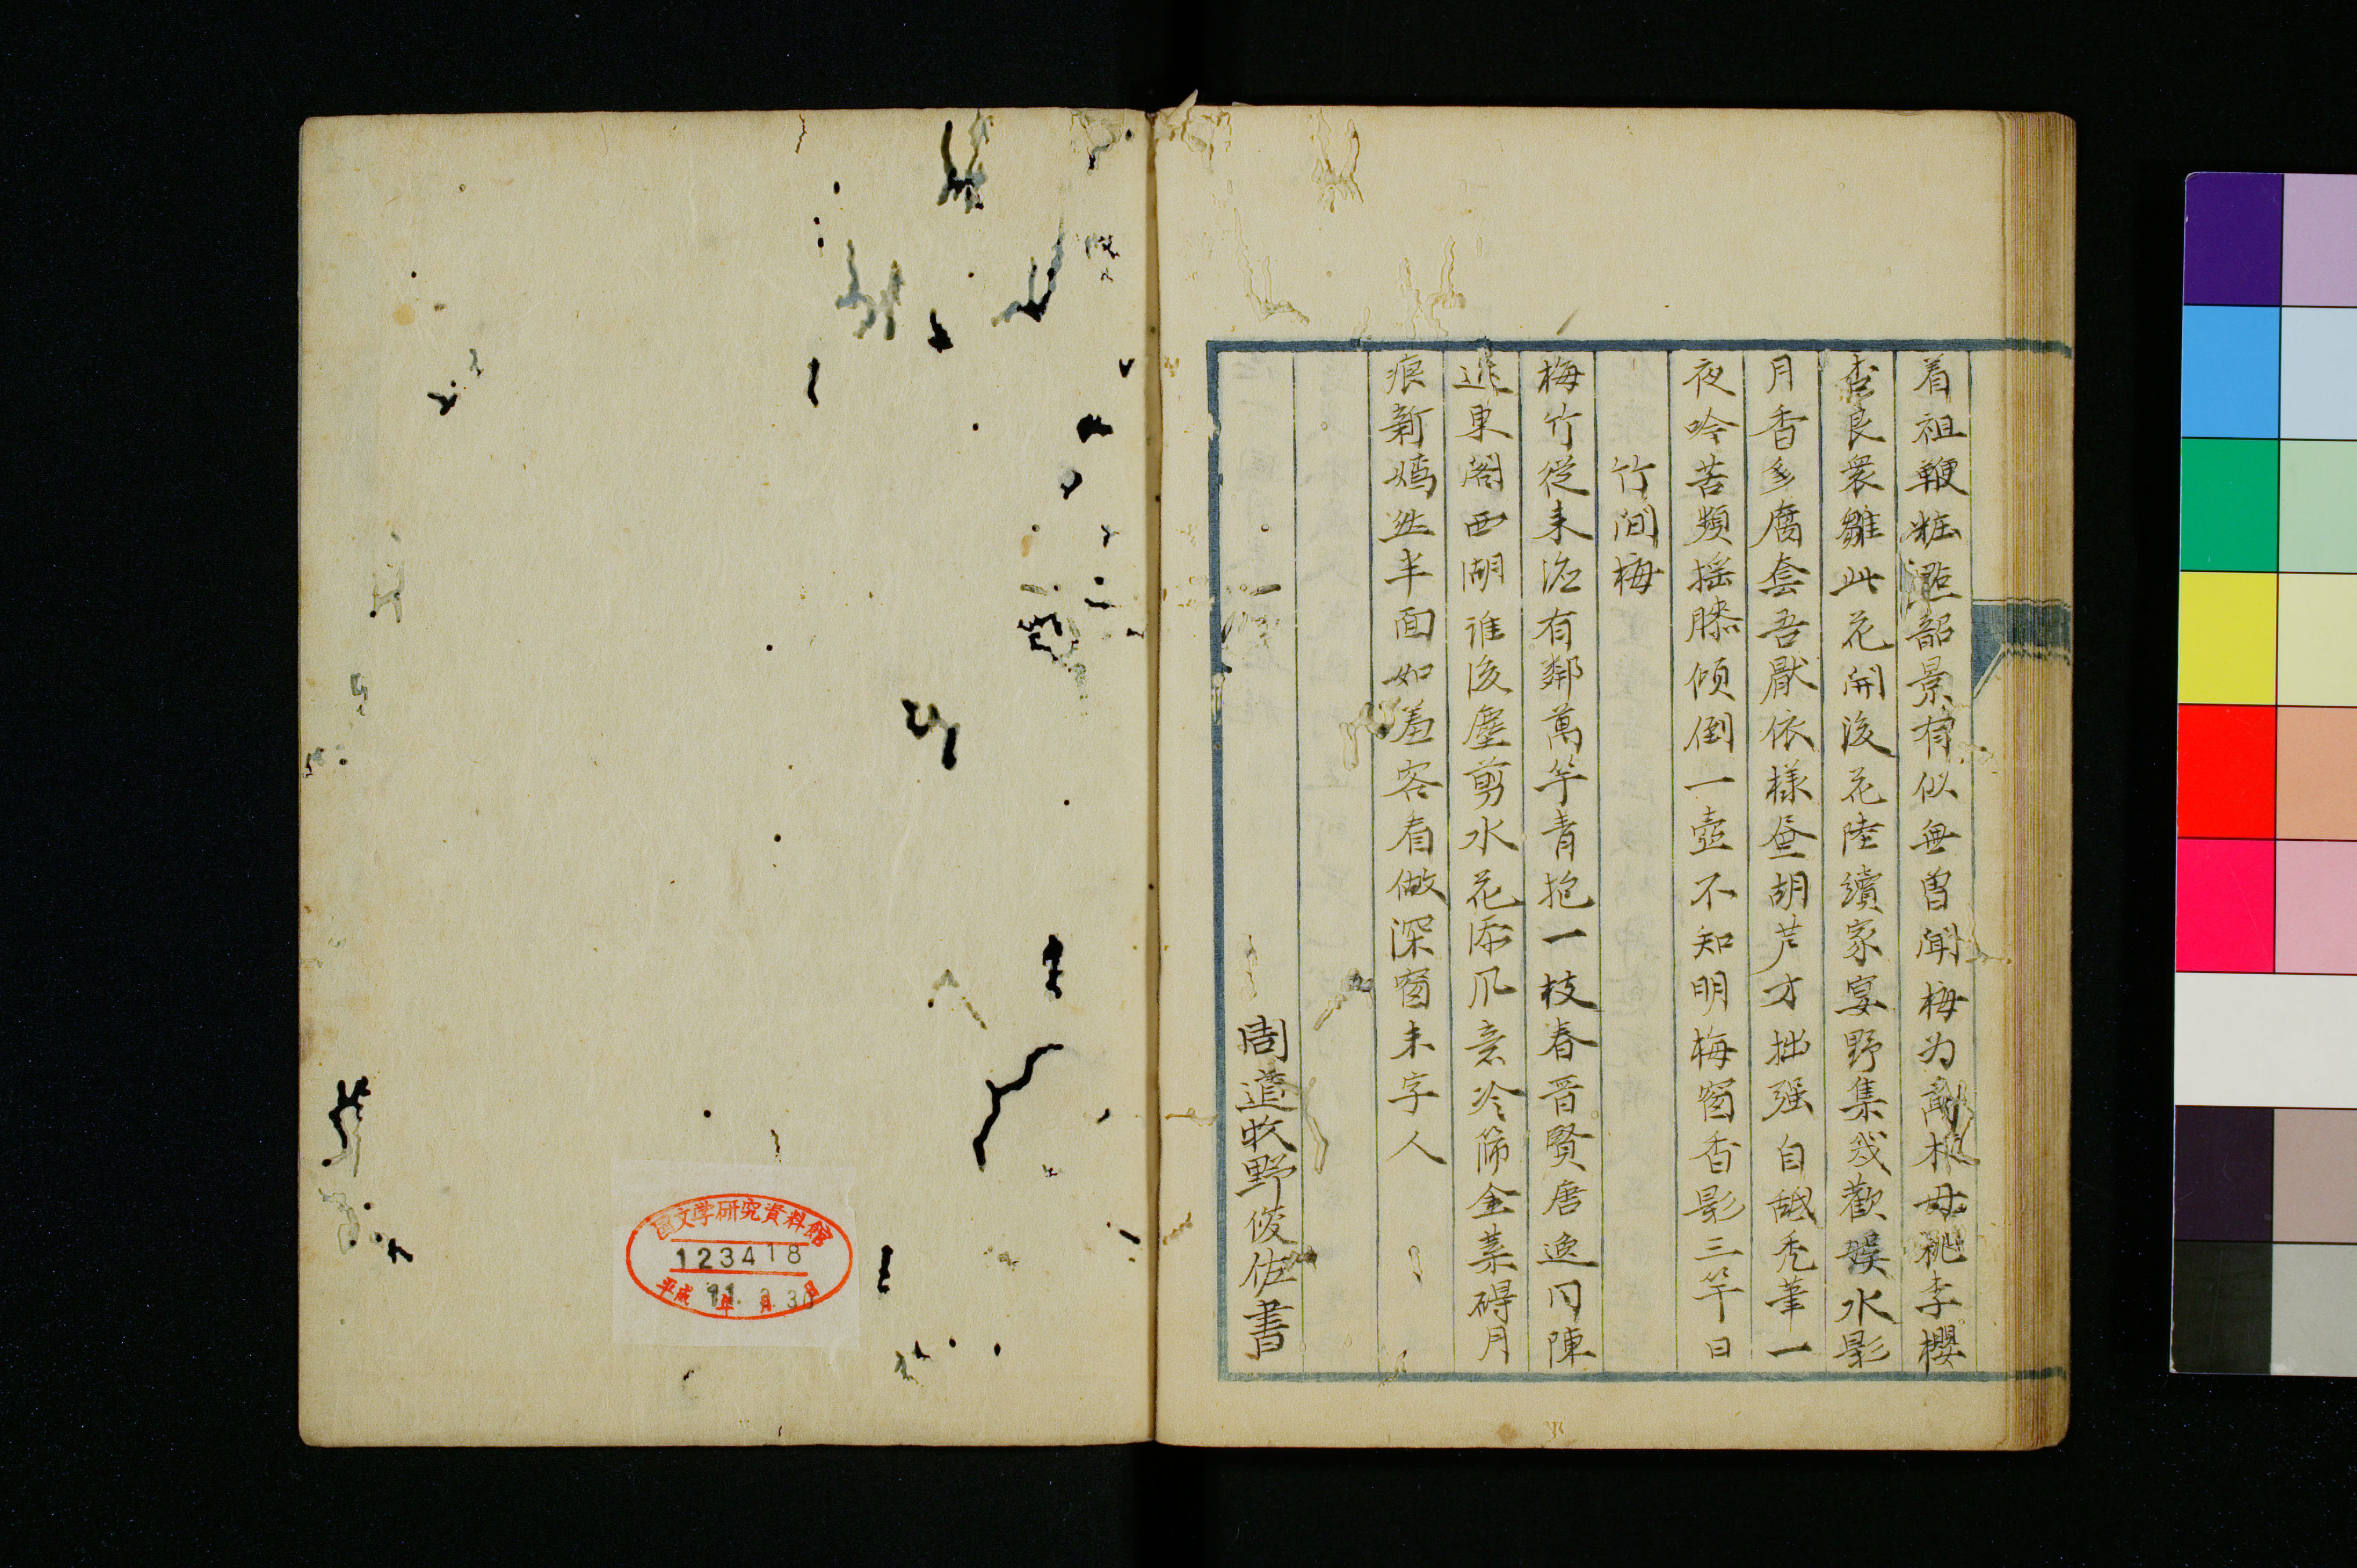 着祖鞭粧㸃韶景有似無曽聞梅为喬木母祧李櫻
杏良衆雛此花開後花陸續家宴野集幾歡娯水影
月香多腐套吾厭依樣昼胡芦才拙强自舐秃筆一
夜吟苦頻揺膝傾倒一壺不知明梅窗香影三竿日
竹间梅
梅竹從来淡有鄰萬竿青抱一枝春晋賢唐逸同陳
迹東閣西湖谁後塵剪水花添爪意冷篩金葉碍月
痕新嫣然半面如羞客看做深窗未字人
周道牧野俊佐書
國文学研究資料館
123418
平成 11年 月 30日